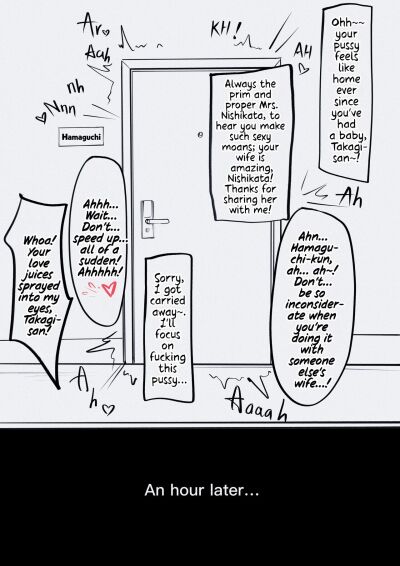 Ohh~~
your
pussy
feels
like
home
ever
since
you've
had
a baby,
Takagi-
san~!
Always the
prim and
proper Mrs.
Nishikata, to
hear you make
such sexy
moans; your
wife is
amazing,
Nishikata!
Thanks for
sharing her
with me!
Ar
Aah
KH!
AH
nh
Nnn
Hamaguchi
Ah
Ahhh...
Wait...
Don't...
speed up...
all of a
sudden!
Ahhhhh!
Whoa!
Your
love
juices
sprayed
into my
eyes,
Takagi-
san!
Ahn...
Hamagu-
chi-kun,
ah... ah~!
Don't...
be so
inconsider-
ate when
you're
doing it
with
someone
else's
wife...!
Sorry,
I got
carried
away~.
I'll
focus
on
fucking
this
pussy...
Ah
Aaaah
An hour later...